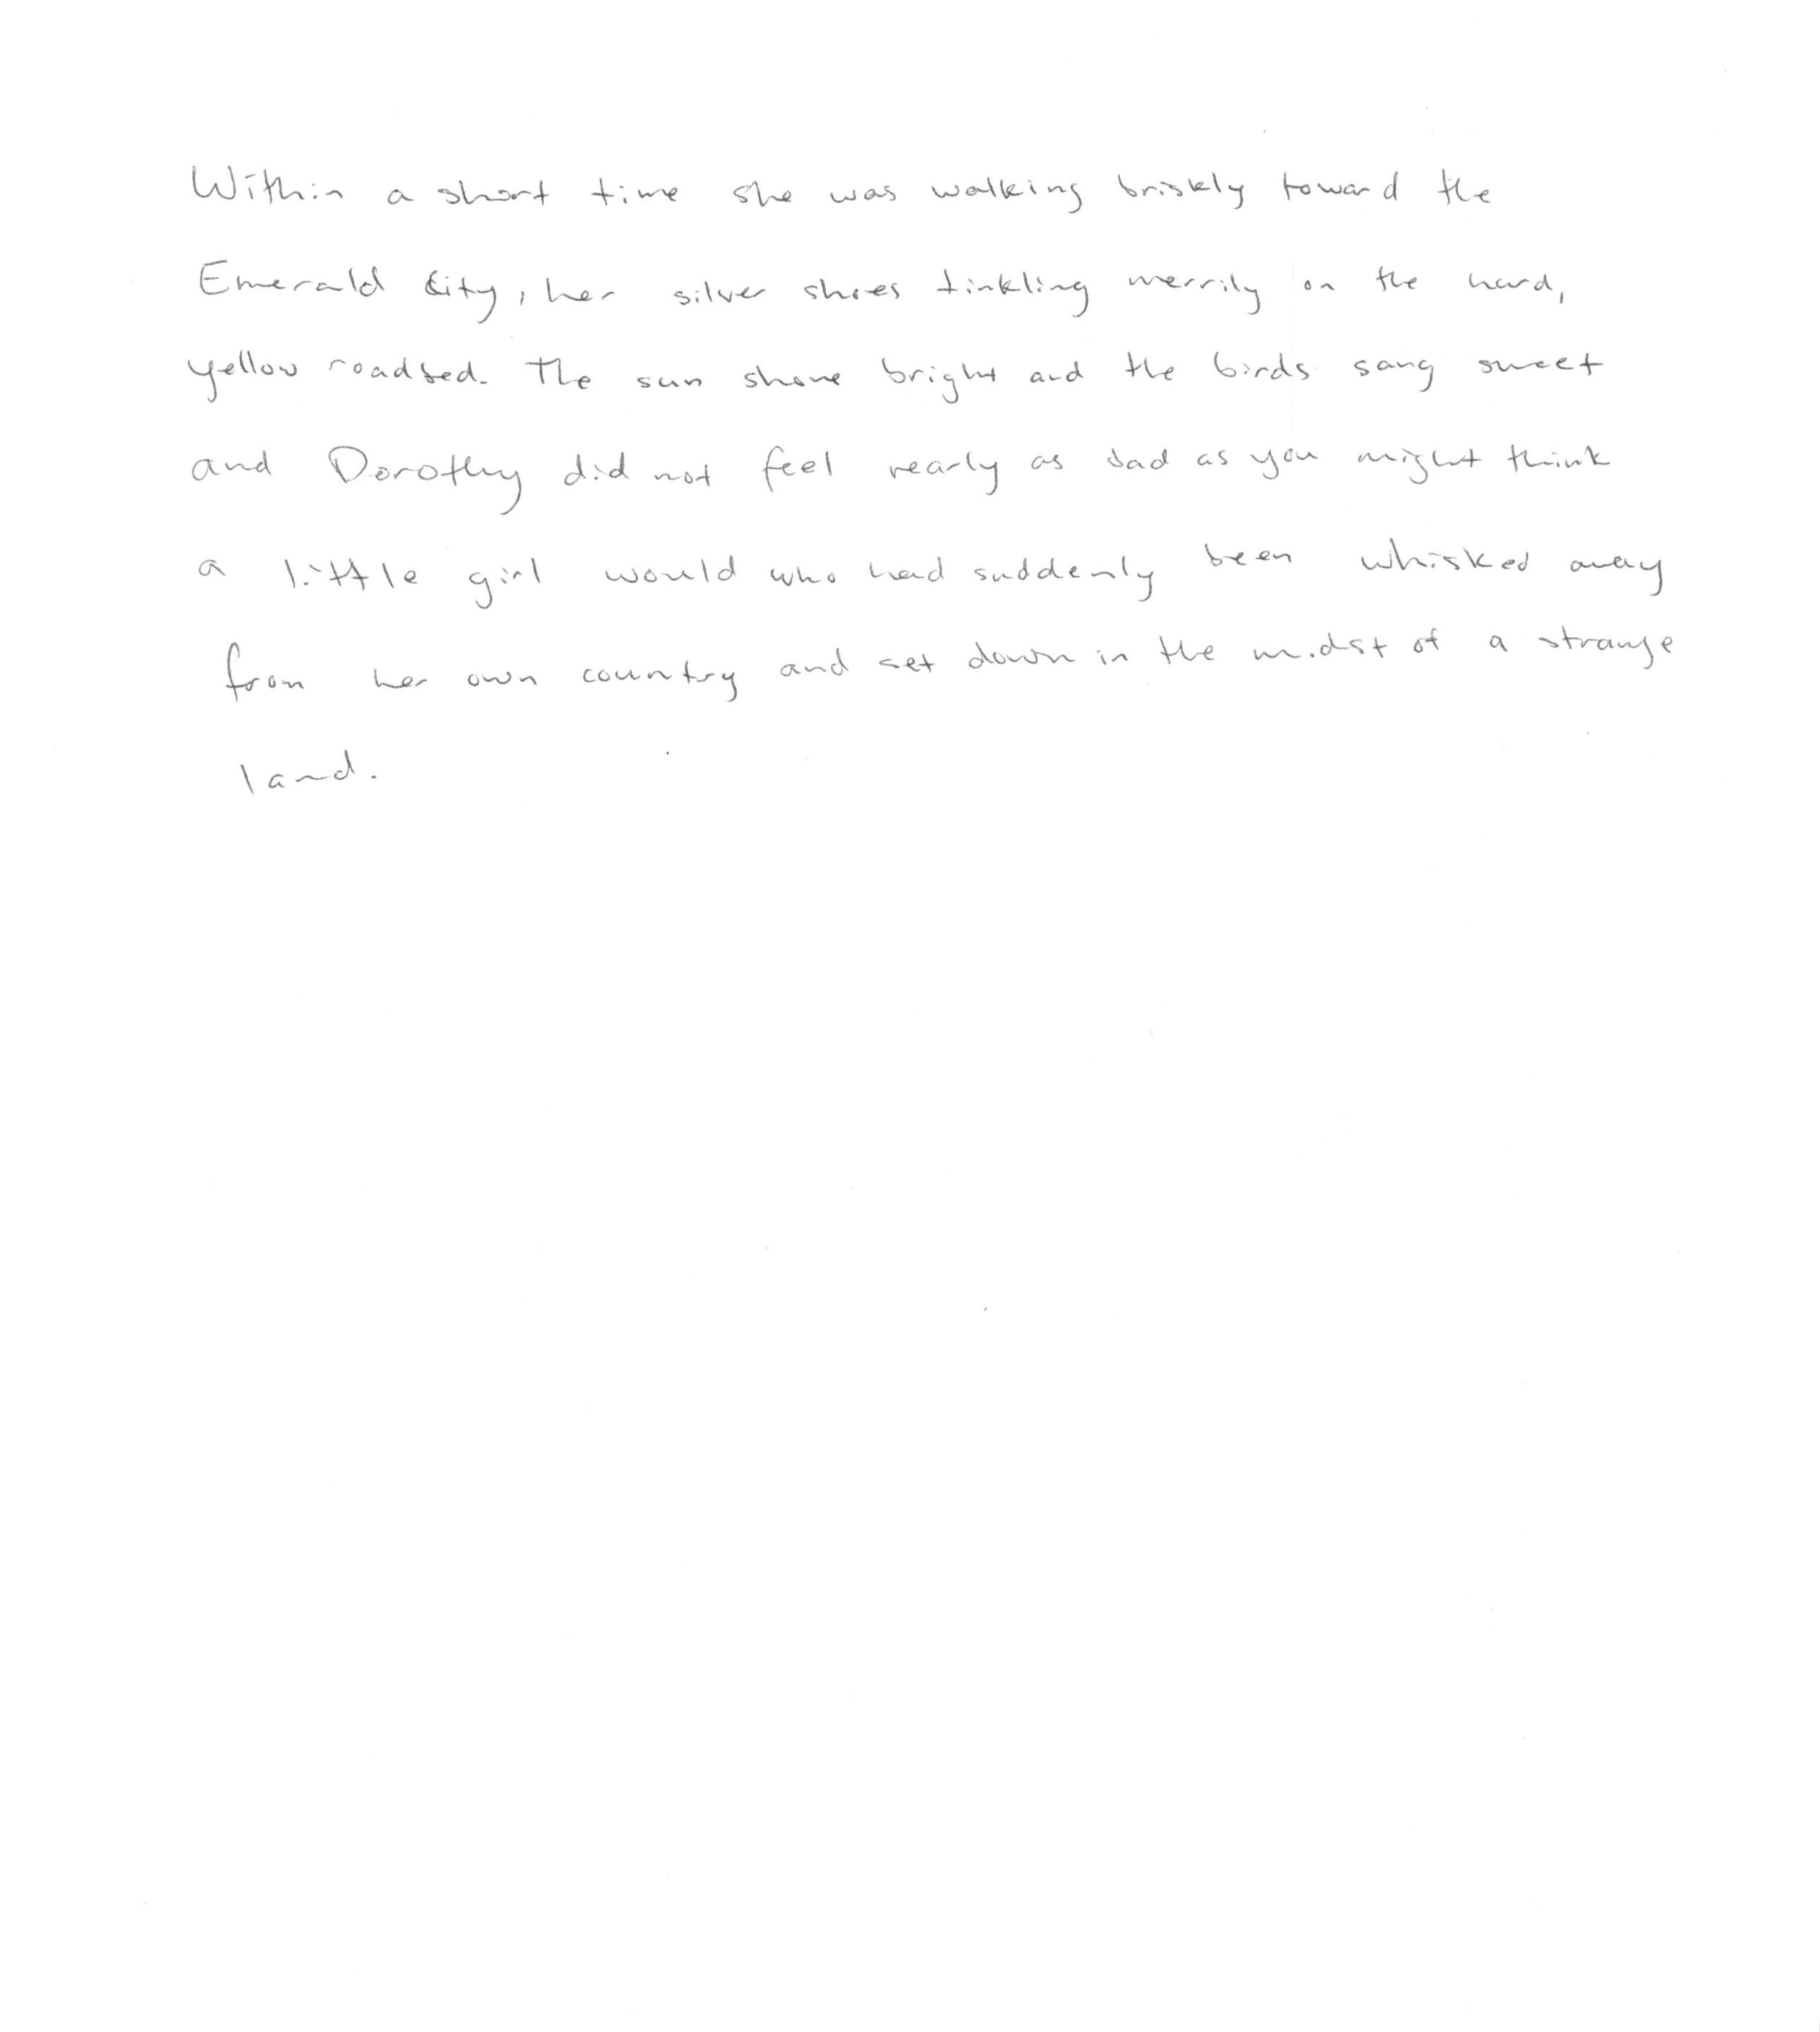 Within a short time she was walking briskly toward the
Emerald City, her silver shoes tinkling merrily on the hard,
yellow roadbed. The sun shone bright and the birds sang sweet
and Dorothy did not feel nearly as bad as you might think
a little girl would who had suddenly been whisked away
from her own country and set down in the midst of a strange
land.